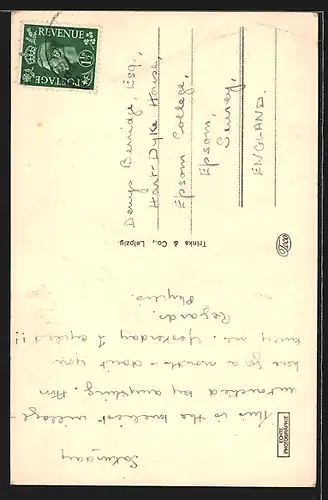 Saturday
This is the loveliest village -
untouched by anything. Am
here for a month - don't you
envy me. Yesterday I !!
Regards.
Phyllis.
ECHTE
PHOTOGRAPHIE
Trinks & Co., Leipzig.
Denys Berridge, Esq.,
Hart-Dyke House,
Epsom College,
Epsom,
Surrey,
ENGLAND.
POSTAGE
REVENUE